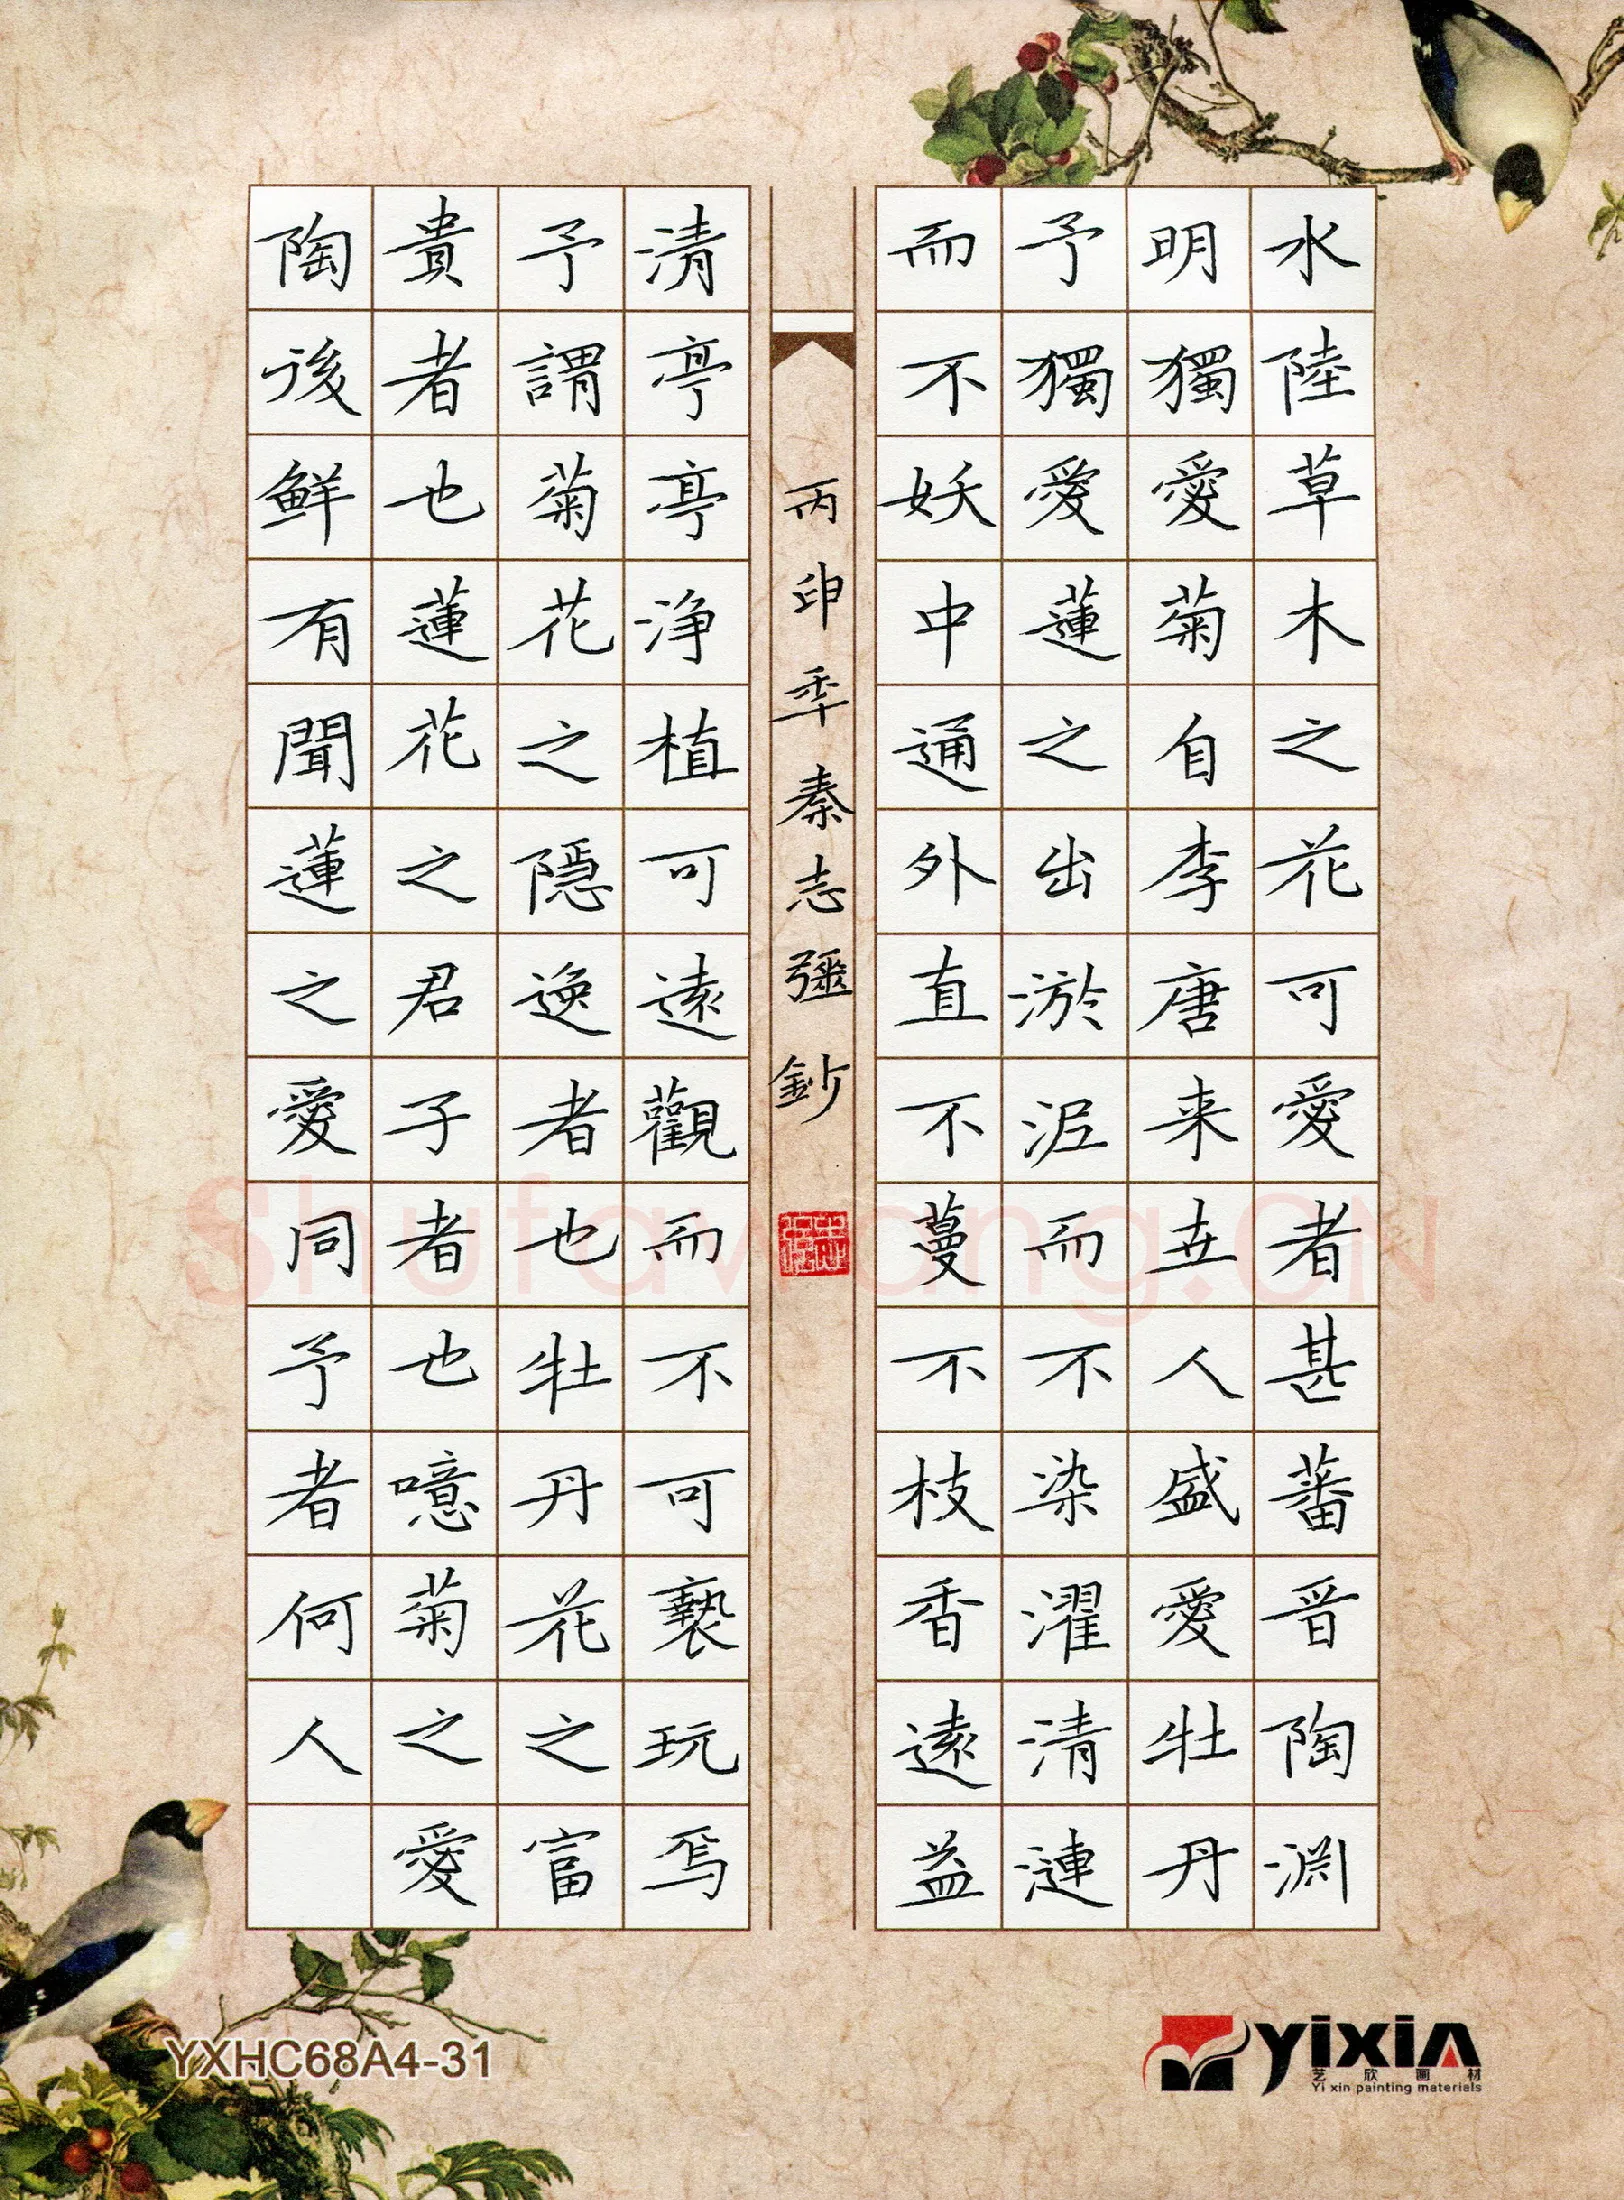 水陸草木之花可愛者甚蕃晋陶渊
明獨愛菊自李唐来世人盛愛牡丹
予獨愛蓮之出淤泥而不染濯清漣
而不妖中通外直不蔓不枝香遠益
丙申年秦志彊鈔
清亭亭净植可遠觀而不可褻玩焉
予謂菊花之隱逸者也牡丹花之富
貴者也蓮花之君子者也噫菊之愛
陶後鲜有聞蓮之愛同予者何人
Shufawang.CN
YXHC68A4-31
yixin
艺欣画材
Yi xin painting materials